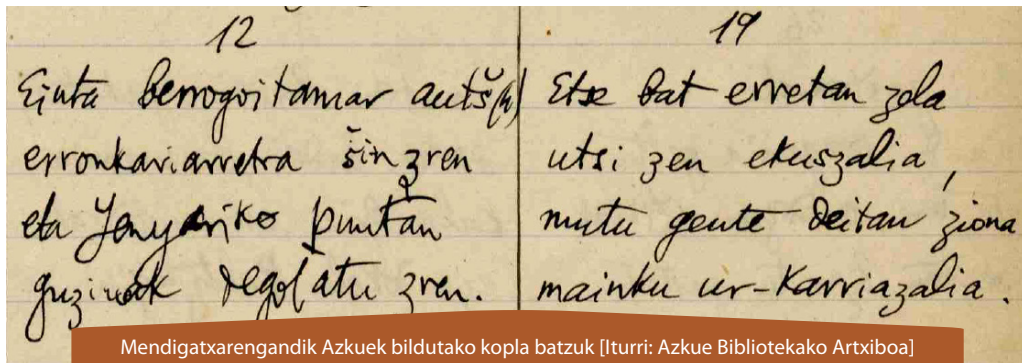 12
Eiuta berrogoitamar autš(k)
erronkariarretra šin zren
eta Yenyariko puntan
guziuak degolatu zren.
19
Etse bat erretan zela
utsi zen ekuszalia,
mutu gente deitan ziona
mainku ur-karriazalia.
Mendigatxarengandik Azkuek bildutako kopla batzuk [Iturri: Azkue Bibliotekako Artxiboa]